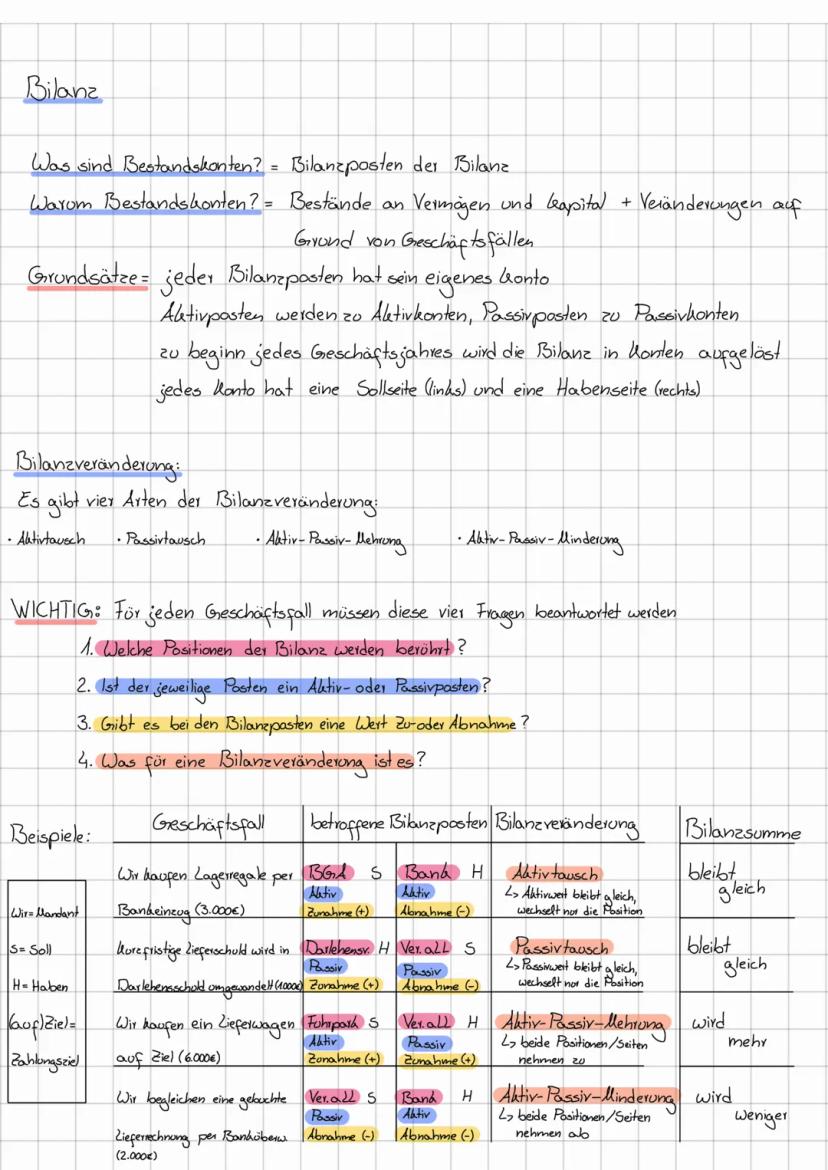 Bilanz
Was sind Bestandskonten? = Bilanzposten der Bilanz
Warum Bestandskonten? = Bestände an Vermögen und Kapital + Veränderungen auf
Grund von Geschäftsfällen
Grundsätze = jeder Bilanzposten hat sein eigenes Konto
Aktivposten werden zu Aktivkonten, Passivposten zu Passivkonten
zu beginn jedes Geschäftsjahres wird die Bilanz in Konten aufgelöst
jedes Konto hat eine Sollseite (links) und eine Habenseite (rechts)
Bilanzveränderung:
Es gibt vier Arten der Bilanzveränderung:
· Aktivtausch · Passivtausch · Aktiv-Passiv-Mehrung · Aktiv-Passiv-Minderung
WICHTIG: Für jeden Geschäftsfall müssen diese vier Fragen beantwortet werden
1. Welche Positionen der Bilanz werden berührt?
2. Ist der jeweilige Posten ein Aktiv- oder Passivposten?
3. Gibt es bei den Bilanzposten eine Wert Zu- oder Abnahme?
4. Was für eine Bilanzveränderung ist es?
Beispiele:
Geschäftsfall betroffene Bilanzposten Bilanzveränderung Bilanzsumme
Wir kaufen Lagerregale per BGA S Bank H Aktivtausch bleibt
Aktiv Aktiv ↳ Aktivwert bleibt gleich, gleich
Bankeinzug (3.000€) Zunahme (+) Abnahme (-) wechselt nur die Position
kurzfristige Lieferschuld wird in Darlehensv. H Ver.aLL S Passivtausch bleibt
Passiv Passiv ↳ Passivwert bleibt gleich, gleich
Darlehensschuld umgewandelt (4.000€) Zunahme (+) Abnahme (-) wechselt nur die Position
Wir kaufen ein Lieferwagen Fuhrpark S Ver.aLL H Aktiv-Passiv-Mehrung wird
Aktiv Passiv ↳ beide Positionen/Seiten mehr
auf Ziel (6.000€) Zunahme (+) Zunahme (+) nehmen zu
Wir begleichen eine gebuchte Ver.aLL S Bank H Aktiv-Passiv-Minderung wird
Passiv Aktiv ↳ beide Positionen/Seiten weniger
Lieferrechnung per Banküberw. Abnahme (-) Abnahme (-) nehmen ab
(2.000€)
Wir = Mandant
S = Soll
H = Haben
(auf) Ziel =
Zahlungsziel